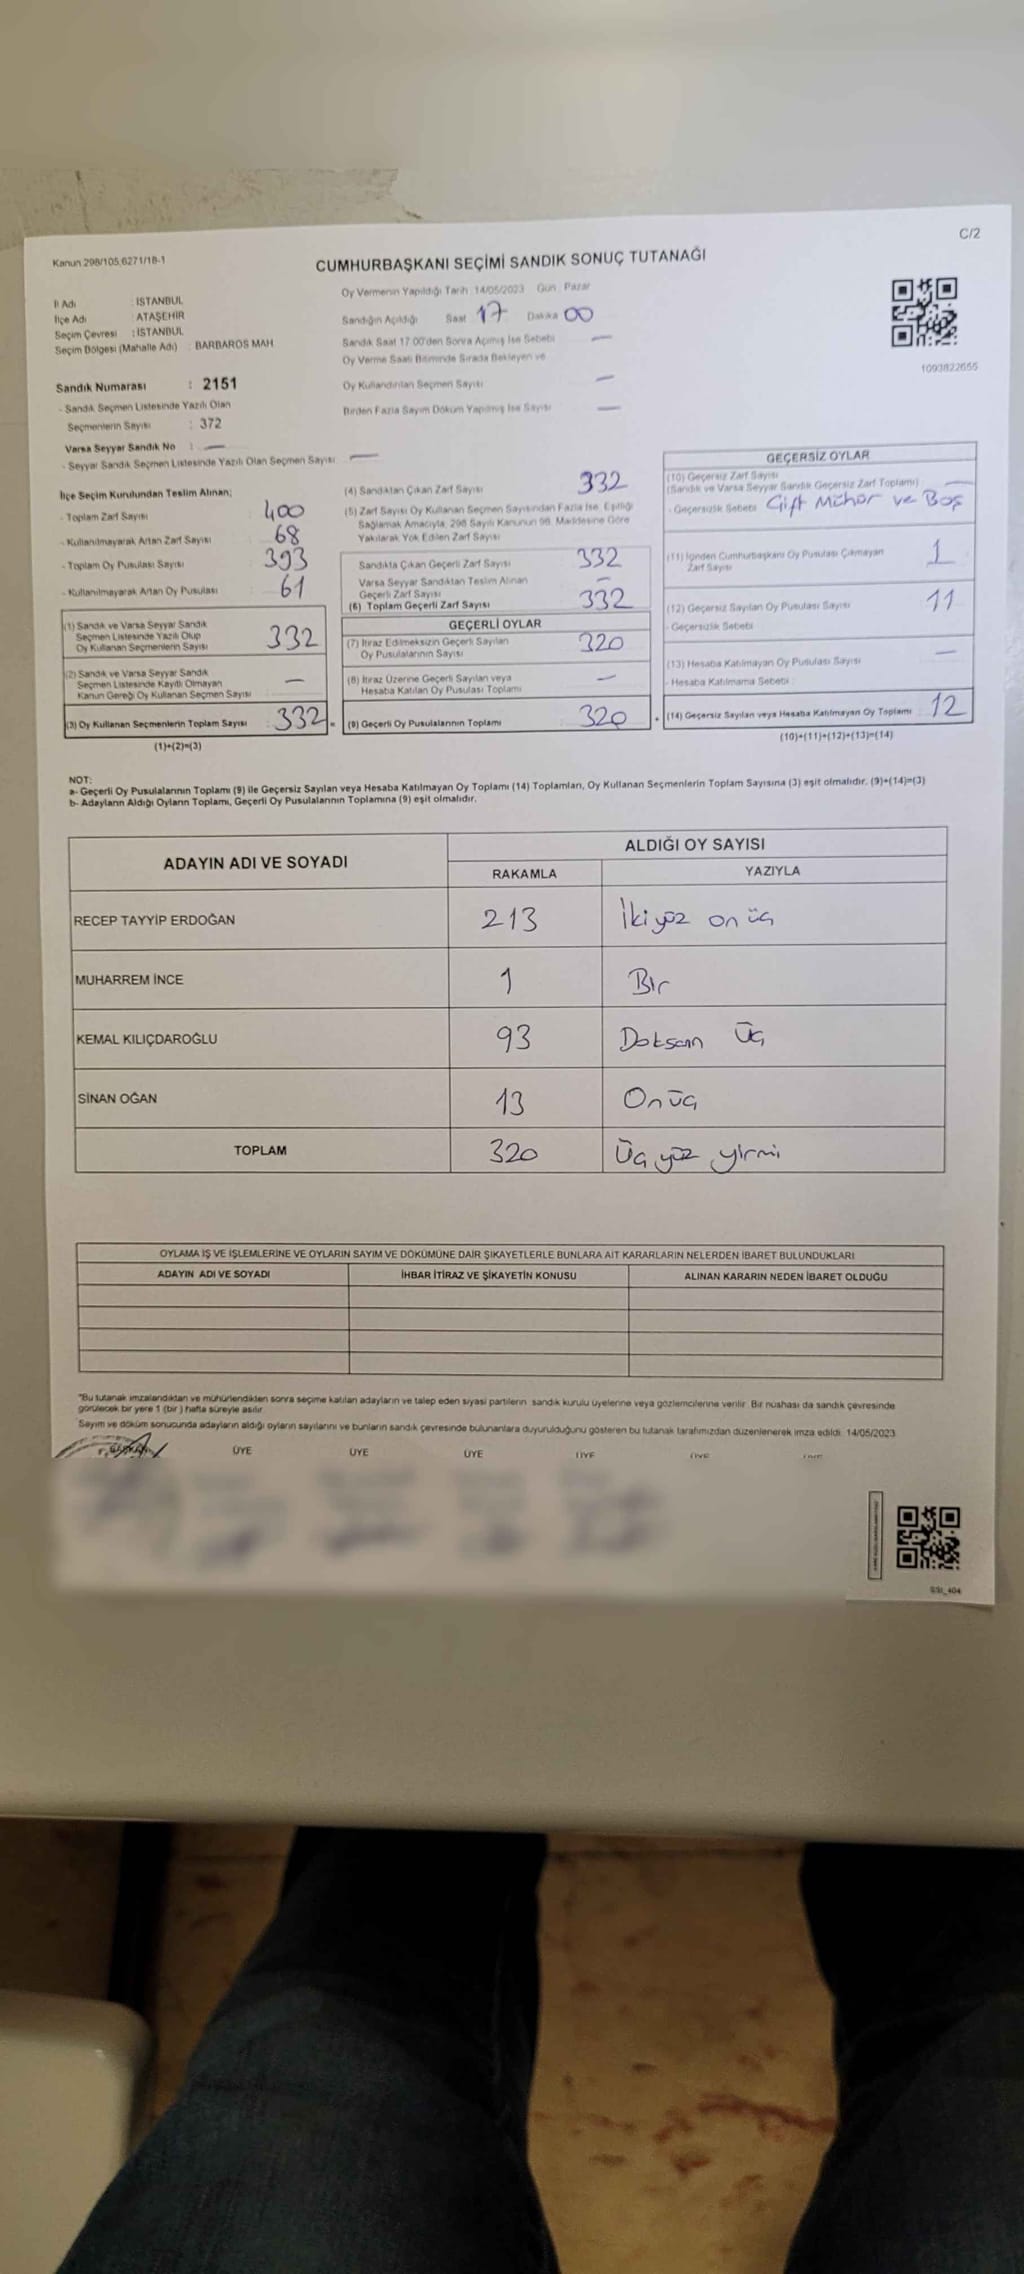 C/2
Kanun 298/105,6271/18-1
CUMHURBAŞKANI SEÇİMİ SANDIK SONUÇ TUTANAĞI
İl Adı : İSTANBUL
İlçe Adı : ATAŞEHİR
Seçim Çevresi : İSTANBUL
Seçim Bölgesi (Mahalle Adı) : BARBAROS MAH
Sandık Numarası : 2151
- Sandık Seçmen Listesinde Yazılı Olan
Seçmenlerin Sayısı : 372
Varsa Seyyar Sandık No : —
- Seyyar Sandık Seçmen Listesinde Yazılı Olan Seçmen Sayısı —
Oy Vermenin Yapıldığı Tarih :14/05/2023 Gün : Pazar
Sandığın Açıldığı Saat 17 Dakika 00
Sandık Saat 17.00'den Sonra Açılmış İse Sebebi —
Oy Verme Saati Bitiminde Sırada Bekleyen ve
Oy Kullandırılan Seçmen Sayısı —
Birden Fazla Sayım Döküm Yapılmış İse Sayısı —
1093822655
İlçe Seçim Kurulundan Teslim Alınan;
- Toplam Zarf Sayısı 400
- Kullanılmayarak Artan Zarf Sayısı 68
- Toplam Oy Pusulası Sayısı 393
- Kullanılmayarak Artan Oy Pusulası 61
(1) Sandık ve Varsa Seyyar Sandık
Seçmen Listesinde Yazılı Olup
Oy Kullanan Seçmenlerin Sayısı 332
(2) Sandık ve Varsa Seyyar Sandık
Seçmen Listesinde Kayıtlı Olmayan
Kanun Gereği Oy Kullanan Seçmen Sayısı —
(3) Oy Kullanan Seçmenlerin Toplam Sayısı : 332 =
(1)+(2)=(3)
(4) Sandıktan Çıkan Zarf Sayısı 332
(5) Zarf Sayısı Oy Kullanan Seçmen Sayısından Fazla İse, Eşitliği
Sağlamak Amacıyla, 298 Sayılı Kanunun 98. Maddesine Göre
Yakılarak Yok Edilen Zarf Sayısı
Sandıkta Çıkan Geçerli Zarf Sayısı 332
Varsa Seyyar Sandıktan Teslim Alınan
Geçerli Zarf Sayısı —
(6) Toplam Geçerli Zarf Sayısı 332
GEÇERLİ OYLAR
(7) İtiraz Edilmeksizin Geçerli Sayılan
Oy Pusulalarının Sayısı 320
(8) İtiraz Üzerine Geçerli Sayılan veya
Hesaba Katılan Oy Pusulası Toplamı —
(9) Geçerli Oy Pusulalarının Toplamı 320 +
GEÇERSİZ OYLAR
(10) Geçersiz Zarf Sayısı
(Sandık ve Varsa Seyyar Sandık Geçersiz Zarf Toplamı) —
- Geçersizlik Sebebi Çift Mühür ve Boş
(11) İçinden Cumhurbaşkanı Oy Pusulası Çıkmayan
Zarf Sayısı 1
(12) Geçersiz Sayılan Oy Pusulası Sayısı 11
- Geçersizlik Sebebi
(13) Hesaba Katılmayan Oy Pusulası Sayısı —
- Hesaba Katılmama Sebebi :
(14) Geçersiz Sayılan veya Hesaba Katılmayan Oy Toplamı 12
(10)+(11)+(12)+(13)=(14)
NOT:
a- Geçerli Oy Pusulalarının Toplamı (9) ile Geçersiz Sayılan veya Hesaba Katılmayan Oy Toplamı (14) Toplamları, Oy Kullanan Seçmenlerin Toplam Sayısına (3) eşit olmalıdır. (9)+(14)=(3)
b- Adayların Aldığı Oyların Toplamı, Geçerli Oy Pusulalarının Toplamına (9) eşit olmalıdır.
ADAYIN ADI VE SOYADI ALDIĞI OY SAYISI
RAKAMLA YAZIYLA
RECEP TAYYİP ERDOĞAN 213 İkiyüz onüç
MUHARREM İNCE 1 Bir
KEMAL KILIÇDAROĞLU 93 Doksan Üç
SİNAN OĞAN 13 Onüç
TOPLAM 320 Üç yüz yirmi
OYLAMA İŞ VE İŞLEMLERİNE VE OYLARIN SAYIM VE DÖKÜMÜNE DAİR ŞİKAYETLERLE BUNLARA AİT KARARLARIN NELERDEN İBARET BULUNDUKLARI
ADAYIN ADI VE SOYADI İHBAR İTİRAZ VE ŞİKAYETİN KONUSU ALINAN KARARIN NEDEN İBARET OLDUĞU
"Bu tutanak imzalandıktan ve mühürlendikten sonra seçime katılan adayların ve talep eden siyasi partilerin sandık kurulu üyelerine veya gözlemcilerine verilir. Bir nüshası da sandık çevresinde
görülecek bir yere 1 (bir) hafta süreyle asılır.
Sayım ve döküm sonucunda adayların aldığı oyların sayılarını ve bunların sandık çevresinde bulunanlara duyurulduğunu gösteren bu tutanak tarafımızdan düzenlenerek imza edildi. 14/05/2023
ÜYE ÜYE ÜYE ÜYE
SSI_404